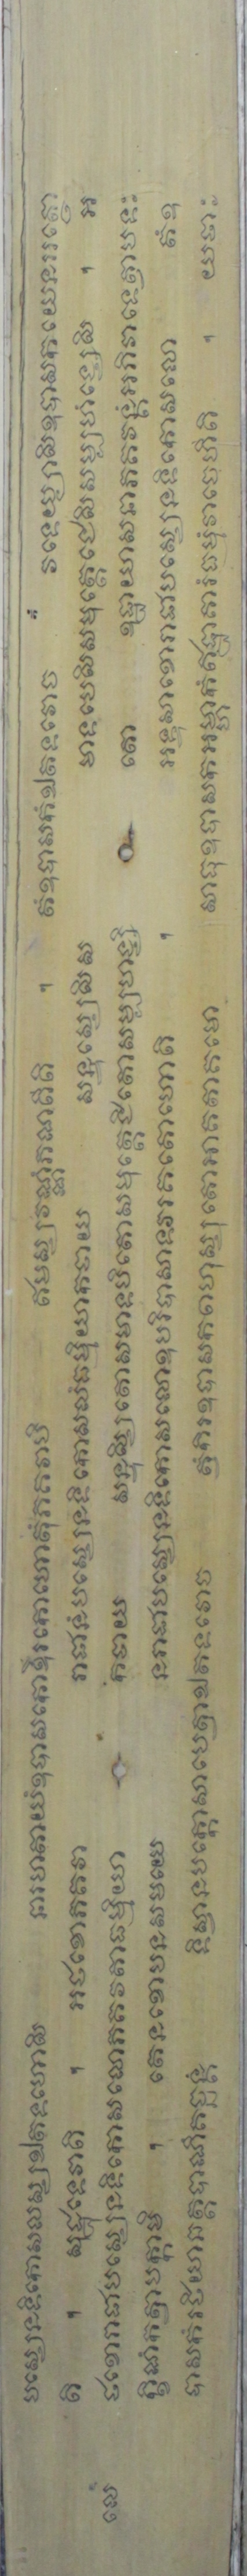 បស្សេនទិកោសលស្សឯតទហោសិ នារហតាយំឧបាសកោឱរកោហោតុំភគវាបិ ឥមស្សវណ្ណំភណតីតិ ។ តំឧបាសកំឯតទវោច វទេយ្យាសិឧបាសកយេនអត្ថោ
តិ ។ សុដ្ឋុទេវាតិ ។ អថខោភគវា រាជានំបស្សេនទិកោសលំធម្មិយាកថាយ សន្ទស្សេសិស មាទបេសិសមុត្តេជេសិសម្បហំសេសិ ។ អ
ថខោរាជាបស្សេនទិកោសលោភគវតាធម្មិយា កថាយ សន្ទស្សិតោសមាទបិតោសមុត្តេជិតោសម្បហំសិ តោ ឧដ្ឋាយាសនាភគវន្តំអភិវាទេត្វាបទ
ក្ខិណំកត្វាបក្កាមិ ។ តេនខោបនសមយេ នរាជាបស្សេនទិកោសលោឧបរិបាសាទវរគតោហោតិ ។ អទ្ទសាខោរាជាបស្សេនទិកោសលោ តំឧ
បាសកំរថិយាឆត្តបាណឹគច្ឆន្តំ ទិស្វានបក្កោសាបេត្វាឯតទវោច ត្វំកិរឧបាសកពហុស្សុតោអាគតាគមោ សាធុឧបាសកអម្ហាកំឥត្ថាគារំធម្មំវាចេហីតិ ។ យ